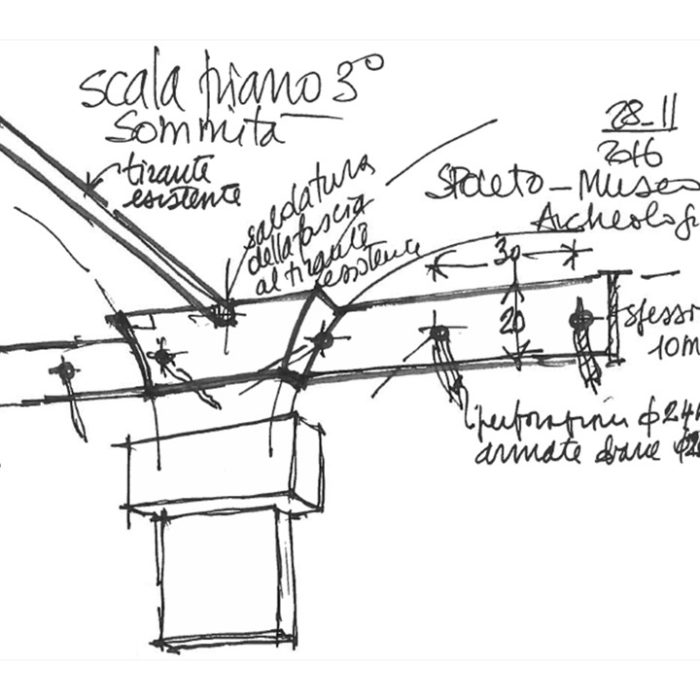 scala piano 3°
sommità
tirante
esistente
saldatura
della fascia
al tirante
esistente
28-11
2016
Spoleto - Museo
Archeologi
30
20
spesso
10m
perforazioni φ24
armate φ2